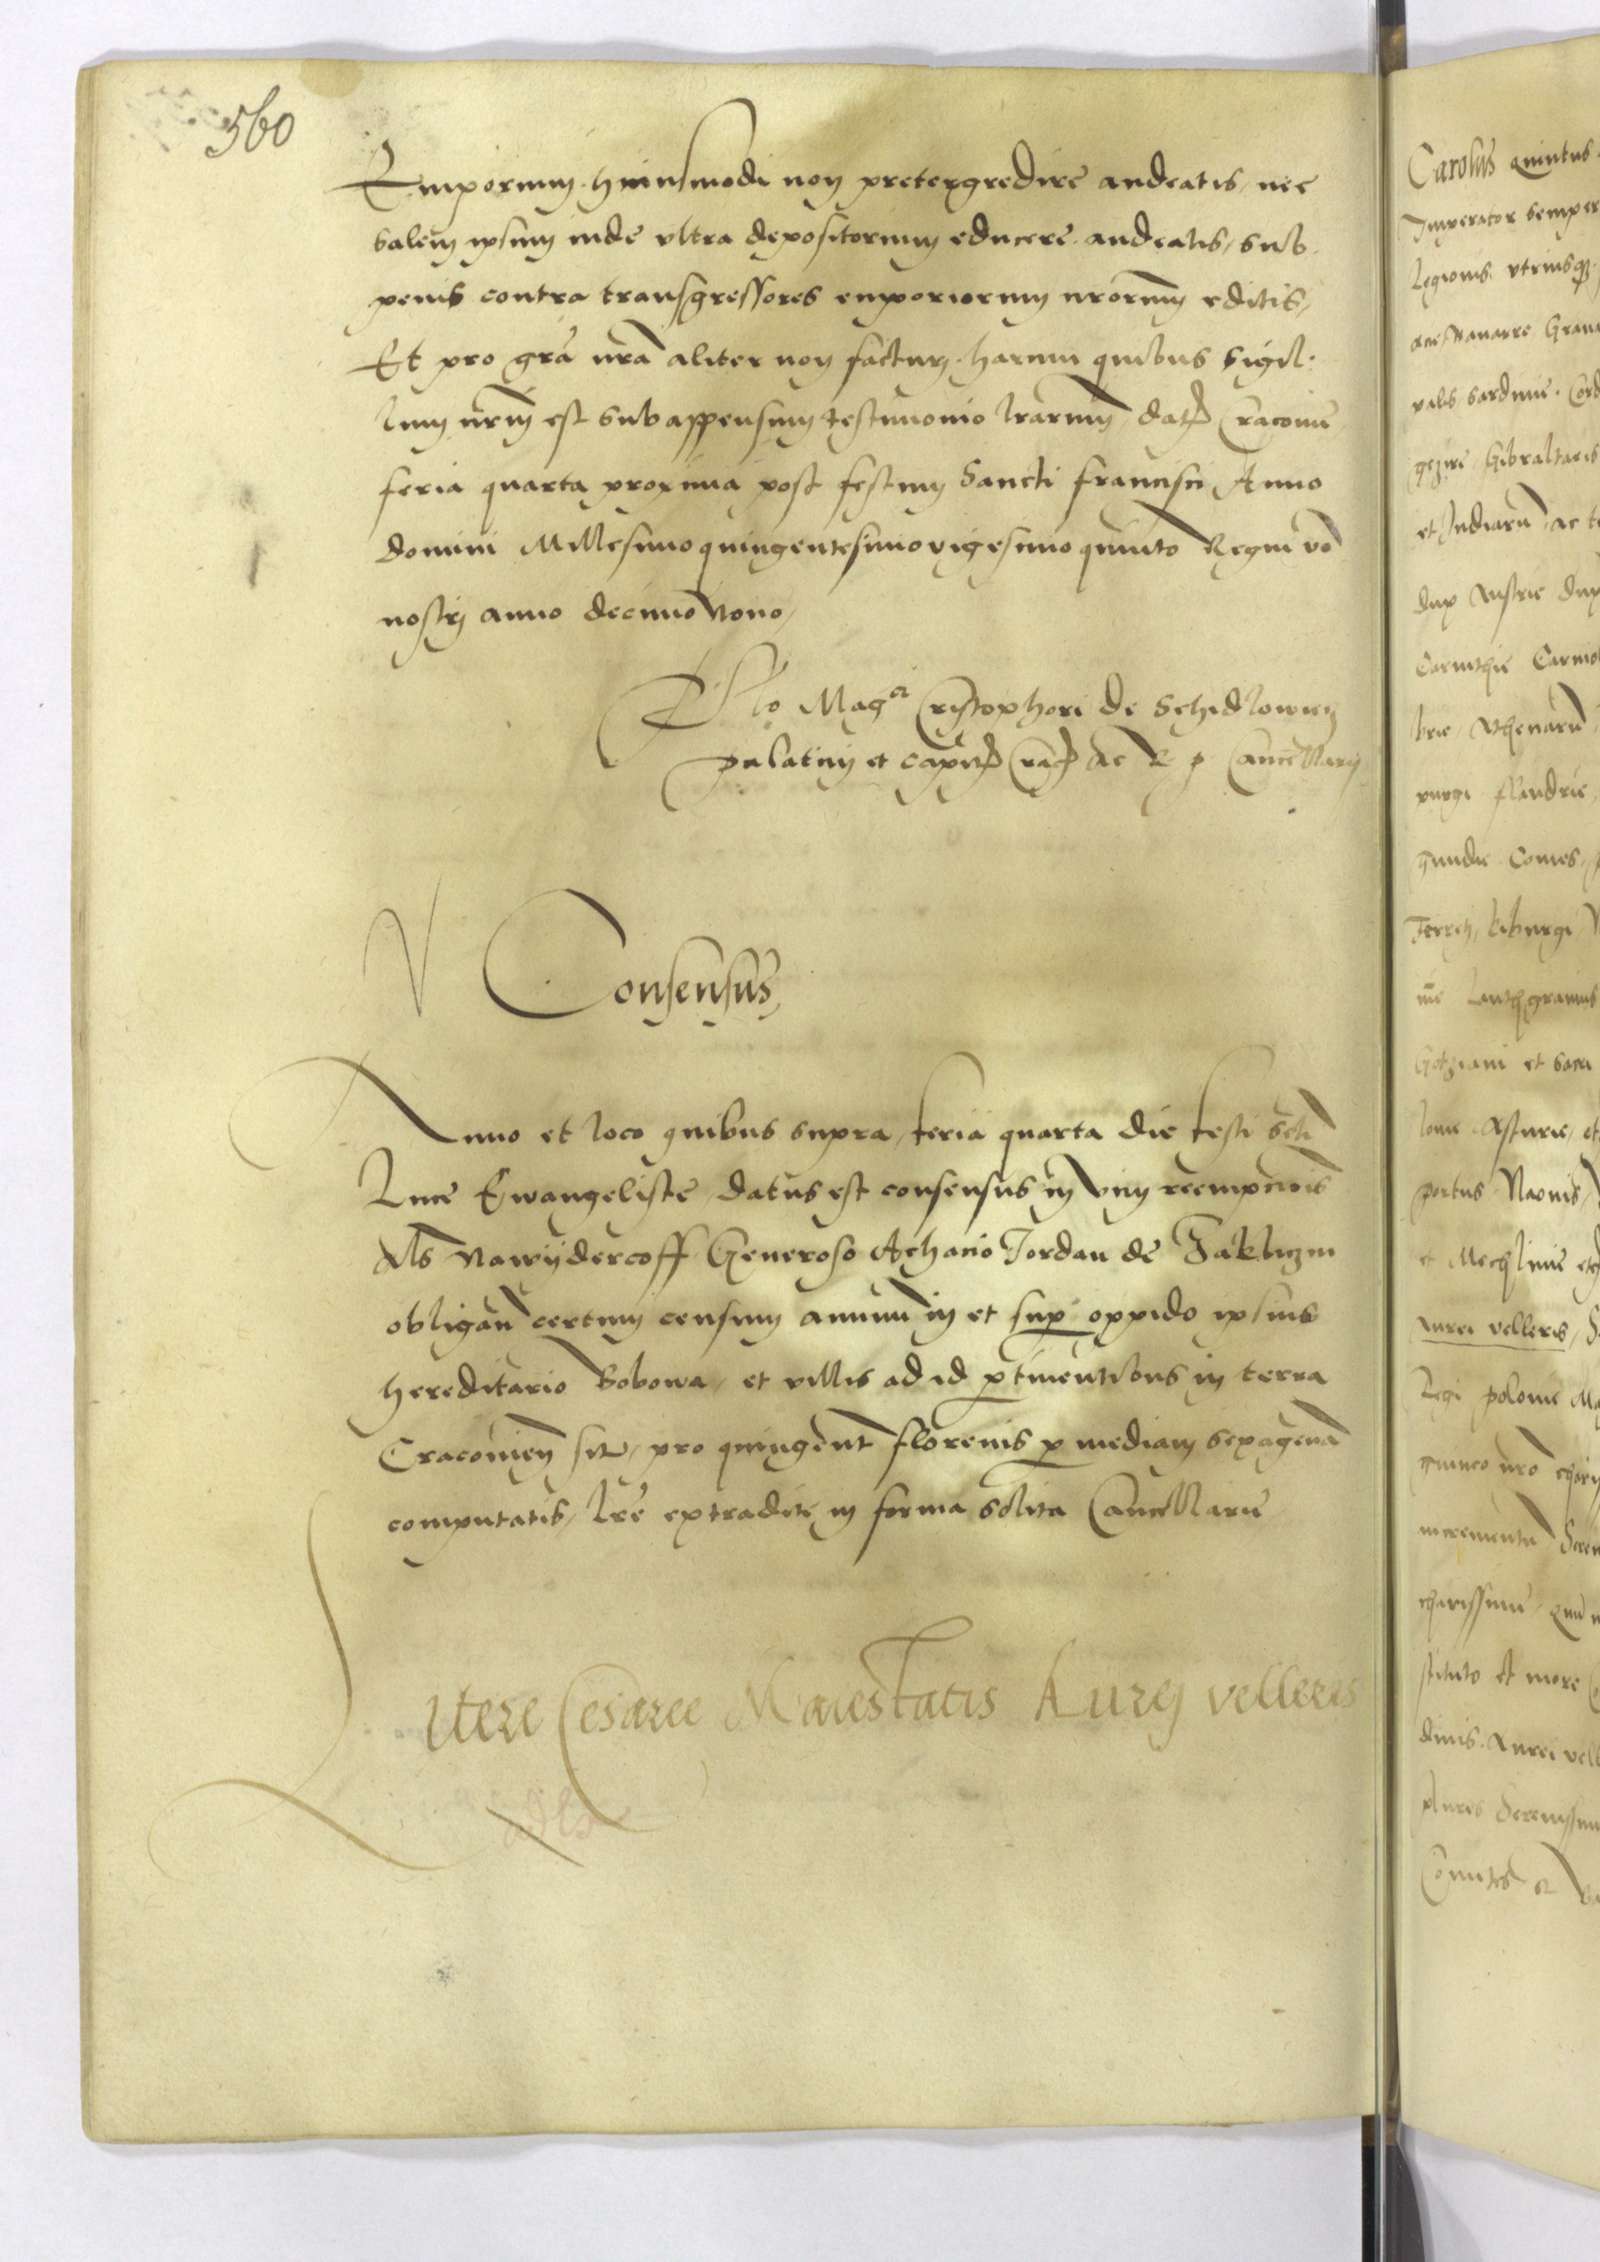 560
Emporium huiusmodi non pretergredire audeatis, nec
salem ipsum inde ultra depositorium educere audeatis, sub
penis contra transgressores emporiorum nrorum editis,
Et pro gra nra aliter non facturi. harum quibus sigil-
lum nrm est subappensum testimonio lrarum, dat Cracovie
feria quarta proxima post festum Sancti francisci Anno
domini Millesimo quingentesimo vigesimo quinto Regni vo
nostri anno decimo Nono,
Rlo Magci Cristophori de Schidlowiecz
palatini et capit Crac Ac R p Cancellarij
Consensus
Anno et loco quibus supra, feria quarta die festi scti
Luce Ewangeliste, datus est consensus in vim reempcionis
als Nawydercoff Generoso Achacio Jordan de Zakliczin
obligan certum censum annuum in et sup oppido ipsius
hereditario Bobowa, et villis ad id ptinentibus in terra
Cracovien sit, pro quingent florenis p mediam sexagena
computatis, lre extradite in forma solita Cancellarie
Litere Cesaree Maiestatis Aurei velleris
Carolus quintus
Imperator semper
Legionis utriusq
Navarre Grana
valis Sardinie Cord
gezire Gibraltaris
et Indiaru ac te
dux Austrie dux
Carinthie Carniol
brie, Athenaru
purgi flandrie,
gundie Comes,
Ferretis, kiburgi
nie Lantgravius
et Sacri
Asturie, et
portus Naonis,
et Mechlinie etc
Aurei velleris, S
Regi polonie Ma
nro chari
incrementu Seren
charissime,
stituto et more
dinis Aurei vell
plures Serenissimu
Comites et